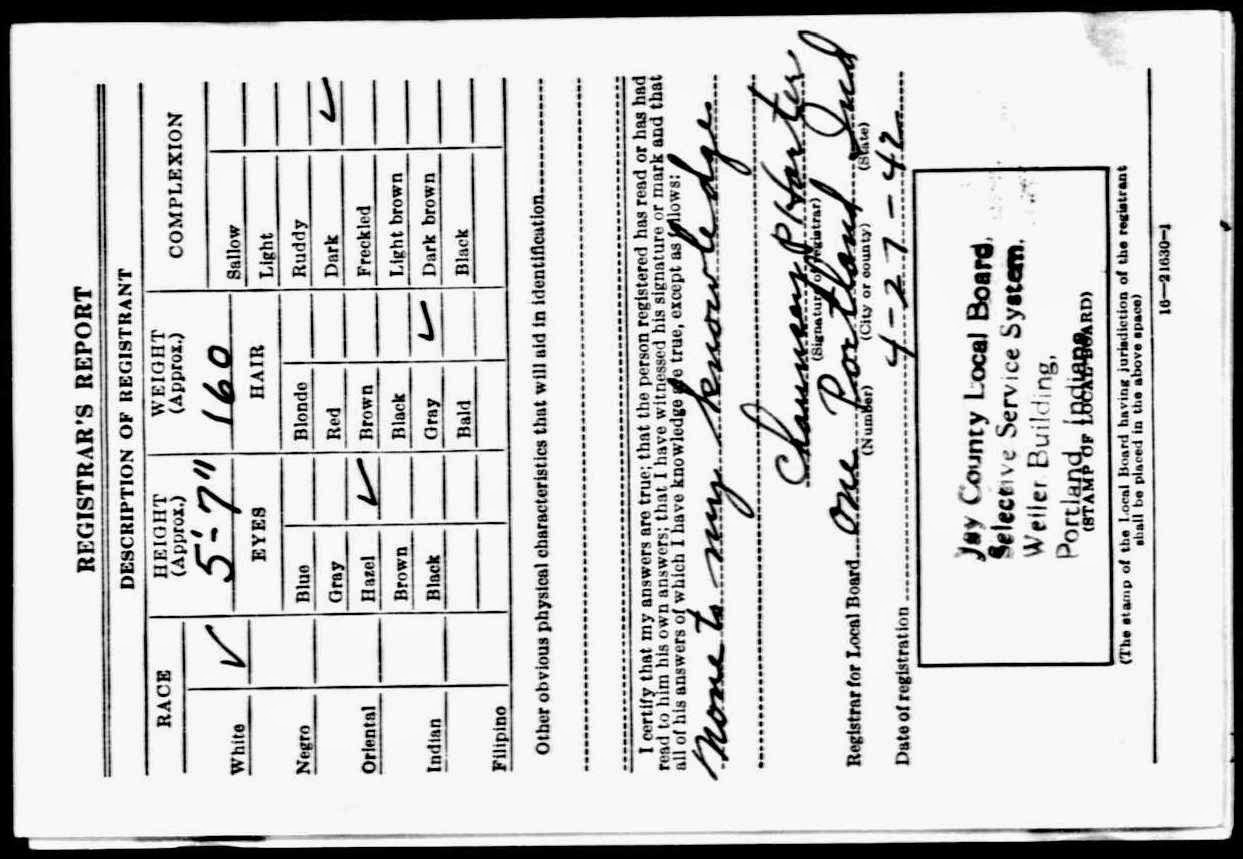 REGISTRAR'S REPORT
DESCRIPTION OF REGISTRANT
RACE HEIGHT (Approx.) WEIGHT (Approx.) COMPLEXION
White ✓ 5'-7" 160 Sallow
EYES HAIR Light
Negro Blue Blonde Ruddy
Gray Red Dark ✓
Oriental Hazel ✓ Brown Freckled
Brown Black Light brown
Indian Black Gray ✓ Dark brown
Bald Black
Filipino
Other obvious physical characteristics that will aid in identification
I certify that my answers are true; that the person registered has read or has had
read to him his own answers; that I have witnessed his signature or mark and that
all of his answers of which I have knowledge are true, except as follows:
None to my knowledge
Chauncey P Harter
(Signature of registrar)
Registrar for Local Board One Portland Ind
(Number) (City or county) (State)
Date of registration 4-27-42
Jay County Local Board,
Selective Service System.
Weller Building,
Portland, Indiana
(STAMP OF LOCAL BOARD)
(The stamp of the Local Board having jurisdiction of the registrant
shall be placed in the above space)
16—21630-1